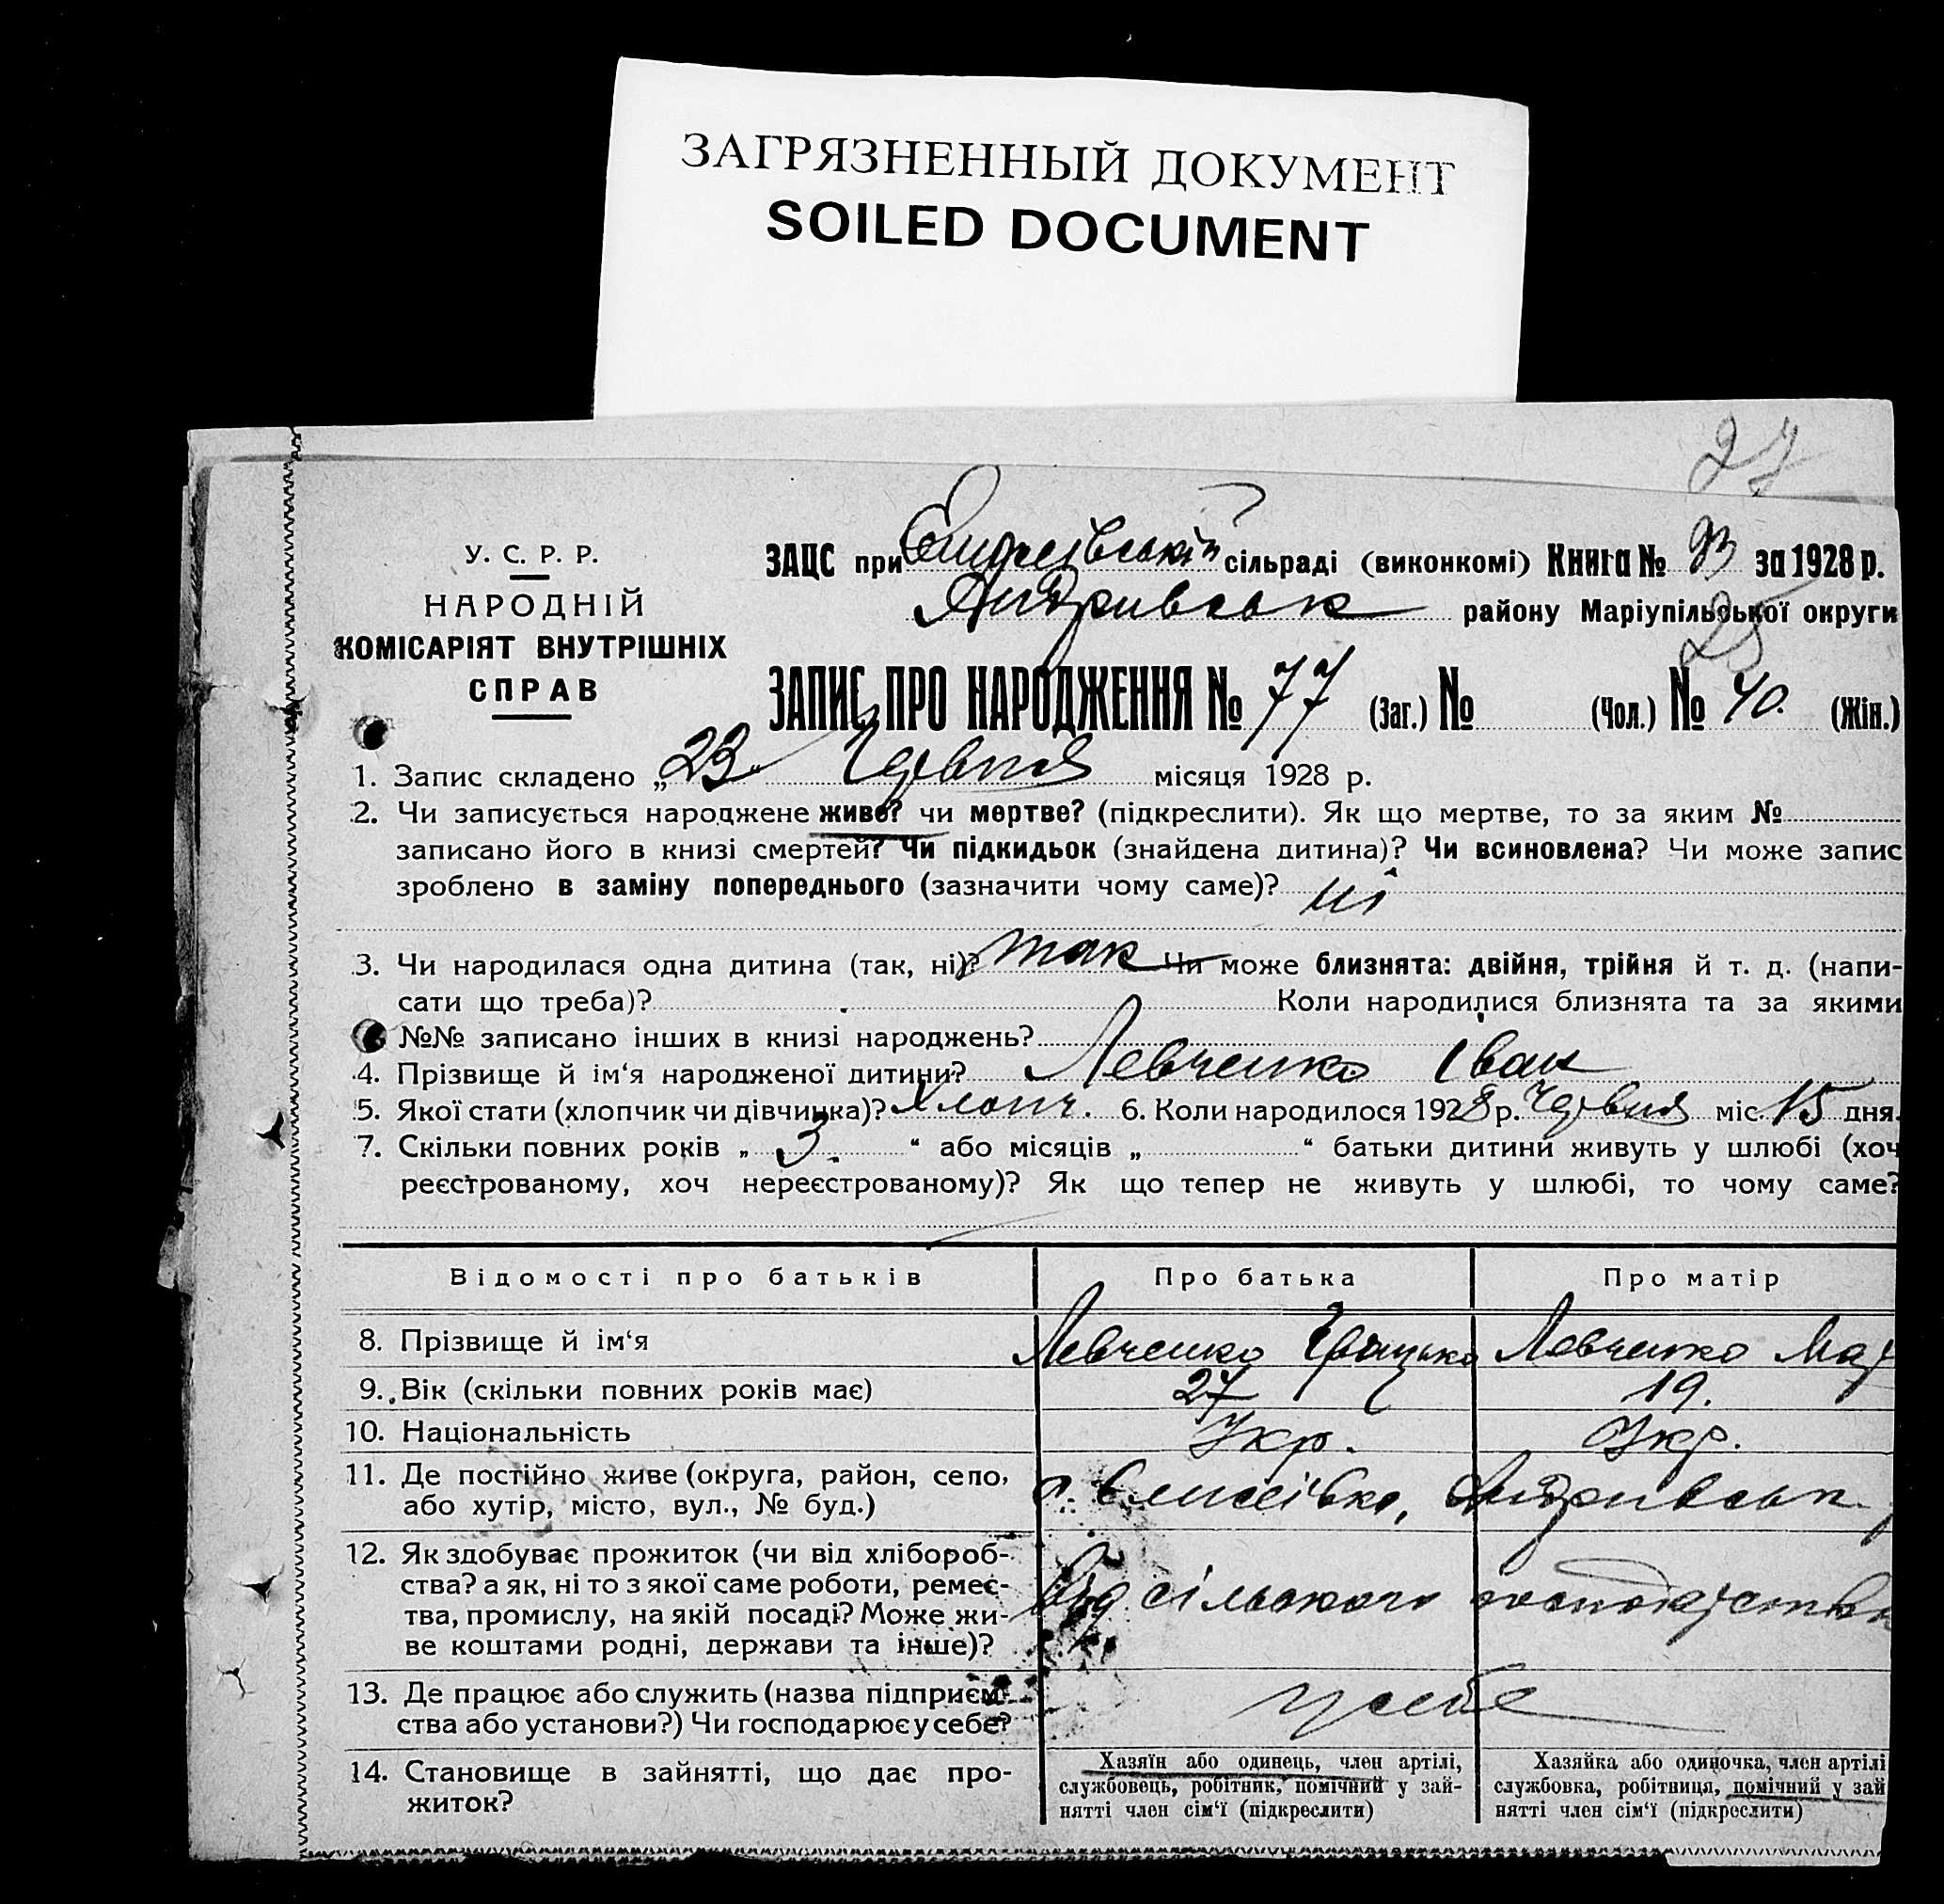 ЗАГРЯЗНЕННЫЙ ДОКУМЕНТ
SOILED DOCUMENT
27
У. С. Р. Р.
НАРОДНІЙ
КОМІСАРІЯТ ВНУТРІШНІХ
СПРАВ
ЗАЦС при сільраді (виконкомі) Книга № за 1928 р.
Андривськ району Маріупільської округи
25
ЗАПИС ПРО НАРОДЖЕННЯ № 77 (Заг.) № (Чол.) № 40. (Жін.)
1. Запис складено „23“ Червня місяця 1928 р.
2. Чи записується народжене живе? чи мертве? (підкреслити). Як що мертве, то за яким №
записано його в книзі смертей? Чи підкидьок (знайдена дитина)? Чи всиновлена? Чи може запис
зроблено в заміну попереднього (зазначити чому саме)? ні
3. Чи народилася одна дитина (так, ні)? так Чи може близнята: двійня, трійня й т. д. (напи-
сати що треба)? Коли народилися близнята та за якими
№№ записано інших в книзі народжень?
4. Прізвище й ім‘я народженої дитини? Левченко Іван
5. Якої стати (хлопчик чи дівчинка)? Хлопч. 6. Коли народилося 1928 р. Червня міс. 15 дня.
7. Скільки повних років „ 3. “ або місяців „ “ батьки дитини живуть у шлюбі (хоч
реєстрованому, хоч нереєстрованому)? Як що тепер не живуть у шлюбі, то чому саме?
Відомості про батьків Про батька Про матір
8. Прізвище й ім‘я Левченко Грицько Левченко Мар
9. Вік (скільки повних років має) 27 19.
10. Національність Укр. Укр.
11. Де постійно живе (округа, район, село, с. Єлисеівка, Андривськ.
або хутір, місто, вул., № буд.)
12. Як здобуває прожиток (чи від хлібороб-
ства? а як, ні то з якої саме роботи, ремес- Від сільського господарства
тва, промислу, на якій посаді? Може жи-
ве коштами родні, держави та інше)?
13. Де працює або служить (назва підприєм- у себе
ства або установи?) Чи господарює у себе?
14. Становище в зайнятті, що дає про-
житок?
Хазяїн або одинець, член артілі,
службовець, робітник, помічний у зай-
нятті член сім‘ї (підкреслити)
Хазяйка або одиночка, член артілі
службовка, робітниця, помічний у зай
нятті член сім‘ї (підкреслити)